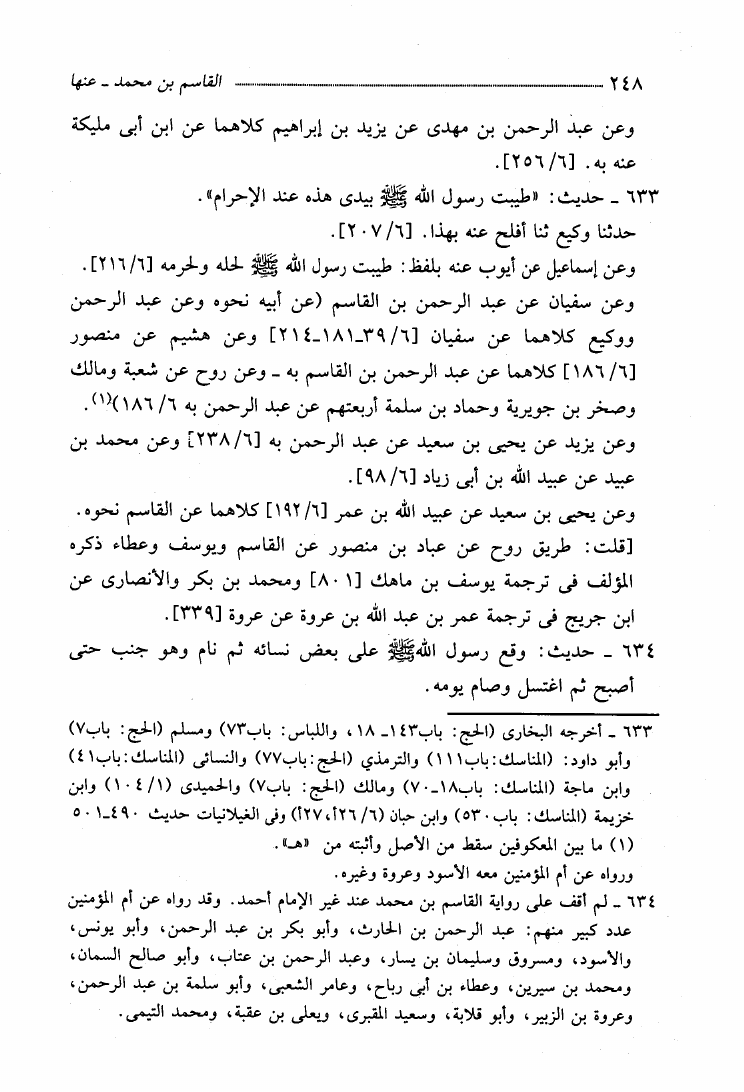 ٢٤٨ القاسم بن محمد ـ عنها
وعن عبد الرحمن بن مهدى عن يزيد بن إبراهيم كلاهما عن ابن أبى مليكة
عنه به. [٢٥٦/٦].
٦٣٣ ـ حديث: «طيبت رسول الله ﷺ بيدى هذه عند الإحرام».
حدثنا وكيع ثنا أفلح عنه بهذا. [٢٠٧/٦].
وعن إسماعيل عن أيوب عنه بلفظ: طيبت رسول الله ﷺ لحله ولحرمه [٢١٦/٦].
وعن سفيان عن عبد الرحمن بن القاسم (عن أبيه نحوه وعن عبد الرحمن
ووكيع كلاهما عن سفيان [٣٩/٦ـ١٨١ـ٢١٤] وعن هشيم عن منصور
[١٨٦/٦] كلاهما عن عبد الرحمن بن القاسم به ـ وعن روح عن شعبة ومالك
وصخر بن جويرية وحماد بن سلمة أربعتهم عن عبد الرحمن به ١٨٦/٦)(١).
وعن يزيد عن يحيى بن سعيد عن عبد الرحمن به [٢٣٨/٦] وعن محمد بن
عبيد عن عبيد الله بن أبى زياد [٩٨/٦].
وعن يحيى بن سعيد عن عبيد الله بن عمر [١٩٢/٦] كلاهما عن القاسم نحوه.
[قلت: طريق روح عن عباد بن منصور عن القاسم ويوسف وعطاء ذكره
المؤلف فى ترجمة يوسف بن ماهك [٨٠١] ومحمد بن بكر والأنصارى عن
ابن جريج فى ترجمة عمر بن عبد الله بن عروة عن عروة [٣٣٩].
٦٣٤ ـ حديث: وقع رسول الله ﷺ على بعض نسائه ثم نام وهو جنب حتى
أصبح ثم اغتسل وصام يومه.
٦٣٣ ـ أخرجه البخارى (الحج: باب١٤٣ـ ١٨، واللباس: باب٧٣) ومسلم (الحج: باب٧)
وأبو داود: (المناسك:باب١١١) والترمذي (الحج:باب٧٧) والنسائى (المناسك:باب٤١)
وابن ماجة (المناسك: باب١٨ـ٧٠) ومالك (الحج: باب٧) والحميدى (١٠٤/١) وابن
خزيمة (المناسك: باب٥٣٠) وابن حبان (٢٦/٦أ،٢٧أ) وفى الغيلانيات حديث ٤٩٠ـ٥٠١
(١) ما بين المعكوفين سقط من الأصل وأثبته من «هـ».
ورواه عن أم المؤمنين معه الأسود وعروة وغيره.
٦٣٤ ـ لم أقف على رواية القاسم بن محمد عند غير الإمام أحمد. وقد رواه عن أم المؤمنين
عدد كبير منهم: عبد الرحمن بن الحارث، وأبو بكر بن عبد الرحمن، وأبو يونس،
والأسود، ومسروق وسليمان بن يسار، وعبد الرحمن بن عتاب، وأبو صالح السمان،
ومحمد بن سيرين، وعطاء بن أبى رباح، وعامر الشعبى، وأبو سلمة بن عبد الرحمن،
وعروة بن الزبير، وأبو قلابة، وسعيد المقبرى، ويعلى بن عقبة، ومحمد التيمى.